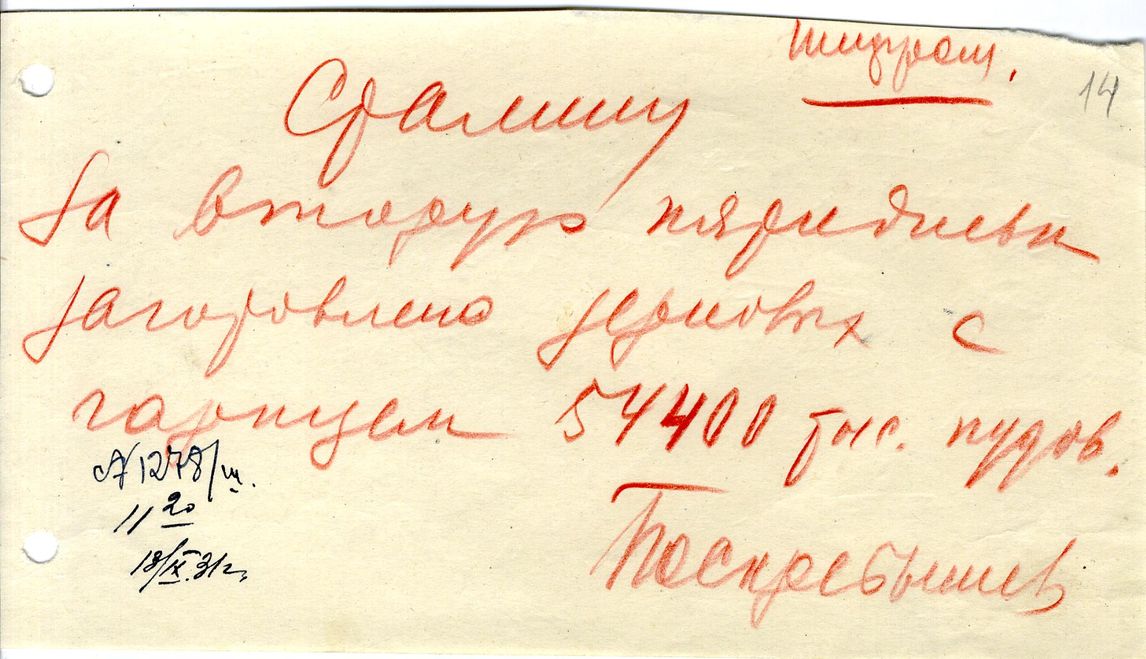 Шифром.
14
Сталину
За вторую пятидневку
заготовлено зерновых с
гарнцем 54400 тыс. пудов.
Поскребышев
№1278/ш.
11 20
18/IX.31г.